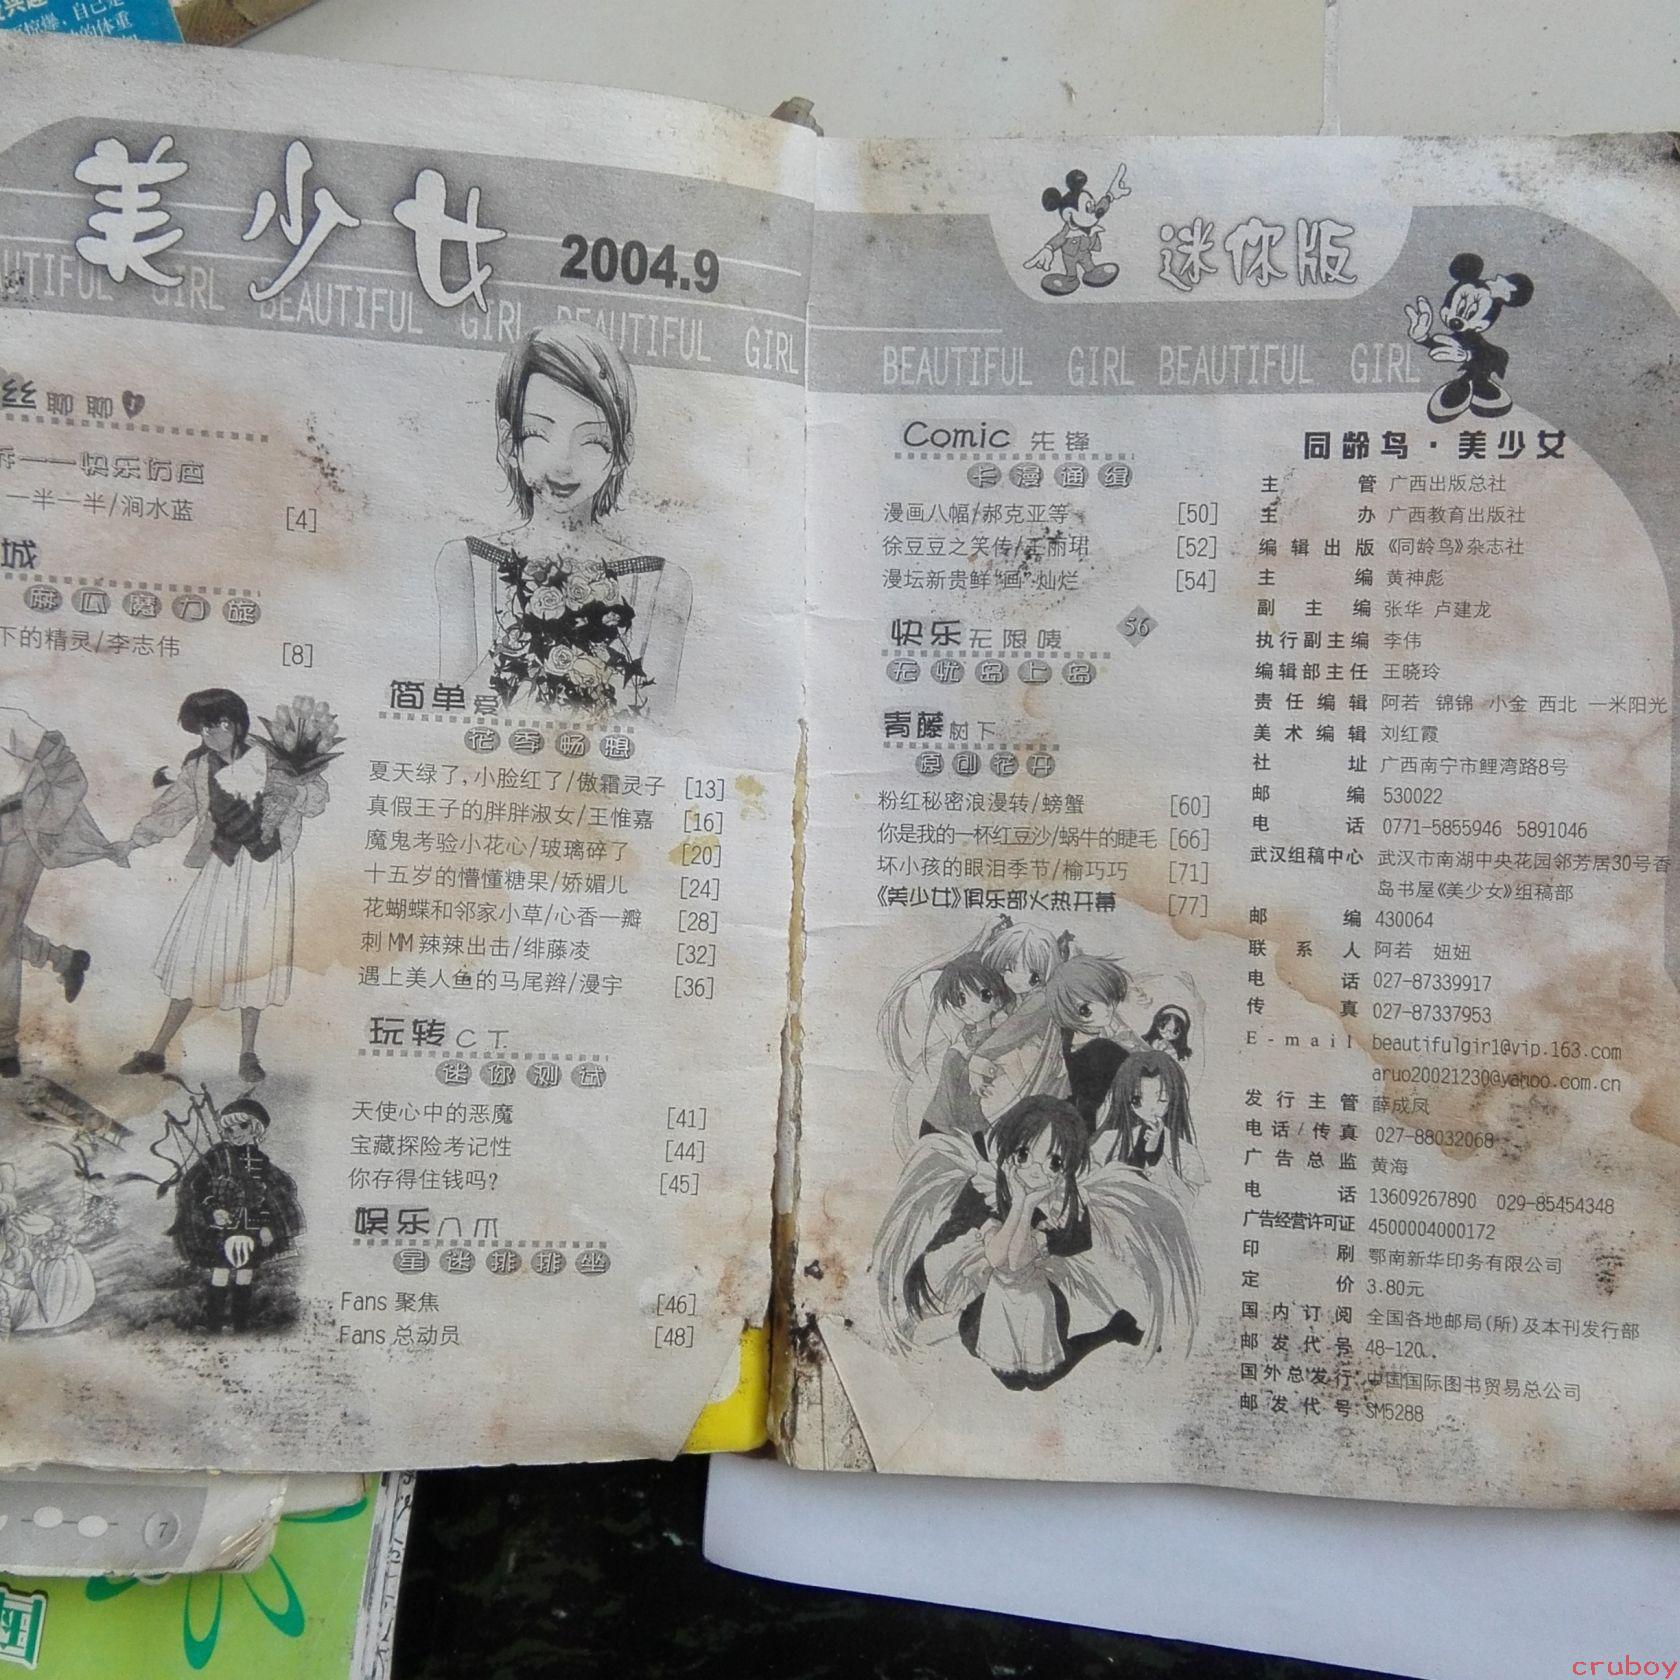 自己是
的体重
美少女
2004.9
BEAUTIFUL GIRL BEAUTIFUL GIRL BEAUTIFUL GIRL
丝 聊聊
——快乐伤痕
一半一半/涧水蓝 [4]
城
麻瓜魔力旋
下的精灵/李志伟 [8]
简单爱
花季畅想
夏天绿了,小脸红了/傲霜灵子 [13]
真假王子的胖胖淑女/王惟嘉 [16]
魔鬼考验小花心/玻璃碎了 [20]
十五岁的懵懂糖果/娇媚儿 [24]
花蝴蝶和邻家小草/心香一瓣 [28]
刺MM辣辣出击/绯藤凌 [32]
遇上美人鱼的马尾辫/漫宇 [36]
玩转C T.
迷你测试
天使心中的恶魔 [41]
宝藏探险考记性 [44]
你存得住钱吗? [45]
娱乐八爪
星迷排排坐
Fans 聚焦 [46]
Fans 总动员 [48]
迷你版
BEAUTIFUL GIRL BEAUTIFUL GIRL
Comic 先锋
卡漫通缉
漫画八幅/郝克亚等 [50]
徐豆豆之笑传/王丽珺 [52]
漫坛新贵鲜“画”灿烂 [54]
快乐无限唛 56
无忧岛上岛
青藤树下
原创花开
粉红秘密浪漫转/螃蟹 [60]
你是我的一杯红豆沙/蜗牛的睫毛 [66]
坏小孩的眼泪季节/榆巧巧 [71]
《美少女》俱乐部火热开幕 [77]
同龄鸟·美少女
主管 广西出版总社
主办 广西教育出版社
编辑出版 《同龄鸟》杂志社
主编 黄神彪
副主编 张华 卢建龙
执行副主编 李伟
编辑部主任 王晓玲
责任编辑 阿若 锦锦 小金 西北 一米阳光
美术编辑 刘红霞
社址 广西南宁市鲤湾路8号
邮编 530022
电话 0771-5855946 5891046
武汉组稿中心 武汉市南湖中央花园邻芳居30号香
岛书屋《美少女》组稿部
邮编 430064
联系人 阿若 妞妞
电话 027-87339917
传真 027-87337953
E-mail beautifulgirl@vip.163.com
aruo20021230@yahoo.com.cn
发行主管 薛成凤
电话/传真 027-88032068
广告总监 黄海
电话 13609267890 029-85454348
广告经营许可证 4500004000172
印刷 鄂南新华印务有限公司
定价 3.80元
国内订阅 全国各地邮局(所)及本刊发行部
邮发代号 48-120
国外总发行:中国国际图书贸易总公司
邮发代号:SM5288
7
cruboy